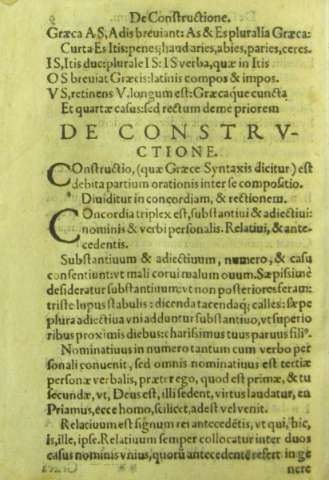 De Constructione.
Græca A S, A dis breuiant: As & Es pluralia Græca:
Curta Es Itis: penes; haud aries, abies, paries, ceres.
I S, Itis duc: plurale I S: I S verba, quæ in Itis
O S breuiat Græcis: latinis compos & impos.
V S, retinens V. longum est: Græcaque cuncta
Et quartæ casus: sed rectum deme priorem
DE CONSTRV-
CTIONE.
COnstructio, (quæ Græce Syntaxis dicitur) est
debita partium orationis inter se compositio.
Diuiditur in concordiam, & rectionem.
COncordia triplex est, substantiui & adiectiui:
nominis & verbi personalis. Relatiui, & ante-
cedentis.
Substantiuum & adiectiuum, numero, & casu
consentiunt: vt mali corui malum ouum. Sæpissime
desideratur substantiuum: vt non posteriores feram:
triste lupus stabulis: dicenda tacendaq; calles: sæpe
plura adiectiua vni adduntur substantiuo, vt superio
ribus proximis diebus: charissimus tuus paruus filiᵒ.
Nominatiuus in numero tantum cum verbo per
sonali conuenit, sed omnis nominatiuus est tertiæ
personæ verbalis, præter ego, quod est primæ, & tu
secundæ, vt, Deus est, illi sedent, virtus laudatur, en
Priamus, ecce homo, scilicet, adest vel venit.
Relatiuum est signum rei antecedētis, vt qui, hic,
Is, ille, ipse. Relatiuum semper collocatur inter duos
casus nominis vnius, quorū antecedente refert in ge
nere